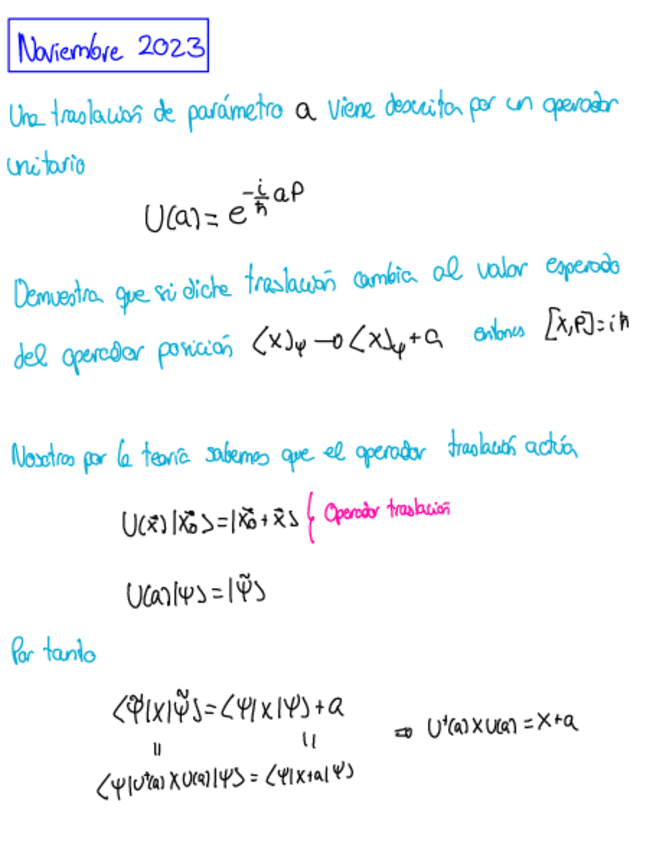 Noviembre 2023
Una traslación de parámetro a viene descrita por un operador
unitario
U(a) = e^{-\frac{i}{ħ} a P}
Demuestra que si dicha traslación cambia al valor esperado
del operador posición ⟨X⟩_ψ → ⟨X⟩_ψ + a entonces [X,P] = iħ
Nosotros por la teoría sabemos que el operador traslación actúa
U(x⃗)|x⃗₀⟩ = |x⃗₀ + x⃗⟩ { Operador traslación
U(a)|ψ⟩ = |ψ̃⟩
Por tanto
⟨ψ̃|X|ψ̃⟩ = ⟨ψ|X|ψ⟩ + a ⇒ U⁺(a) X U(a) = X + a
|| ||
⟨ψ|U⁺(a) X U(a)|ψ⟩ = ⟨ψ|X+a|ψ⟩